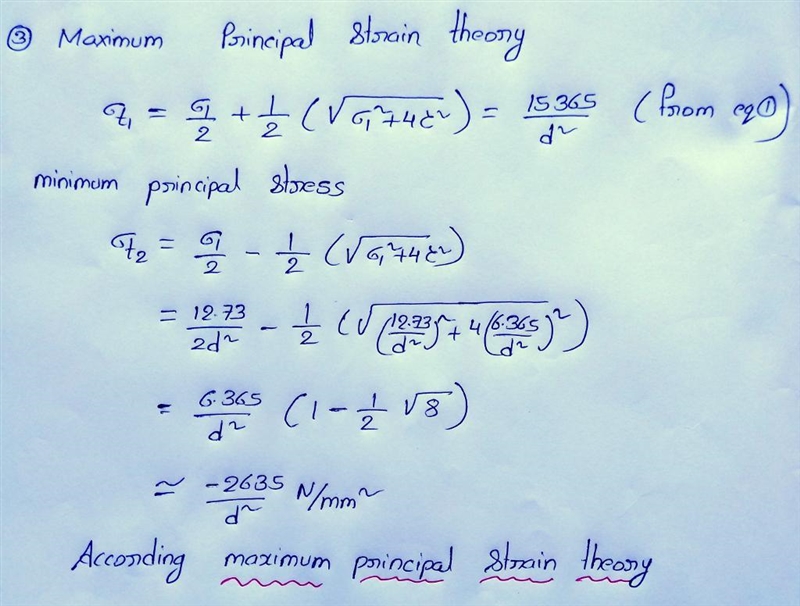 ③ Maximum Principal Strain theory
σt₁ = σ₁/2 + 1/2 (√(σ₁²+4τ²)) = 15365/d² (from eq①)
minimum principal stress
σt₂ = σ₁/2 - 1/2 (√(σ₁²+4τ²))
= 12.73/2d² - 1/2 (√((12.73/d²)² + 4(6.365/d²)²))
= 6.365/d² (1 - 1/2 √8)
≃ -2635/d² N/mm²
According maximum principal strain theory